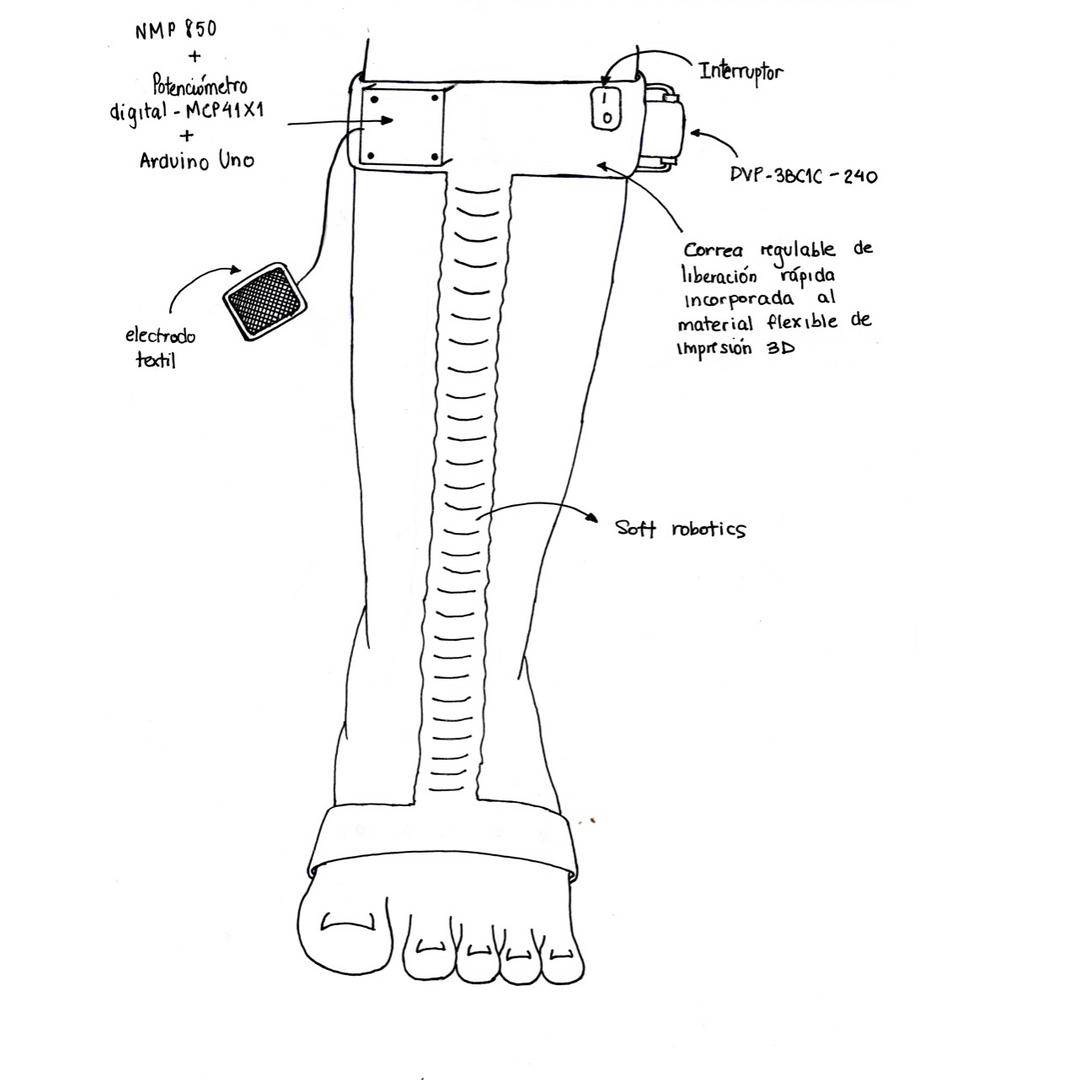 NMP 850
+
Potenciómetro
digital - MCP41X1
+
Arduino Uno
Interruptor
I
O
DVP-3BC1C-240
Correa regulable de
liberación rápida
incorporada al
material flexible de
impresión 3D
electrodo
textil
Soft robotics